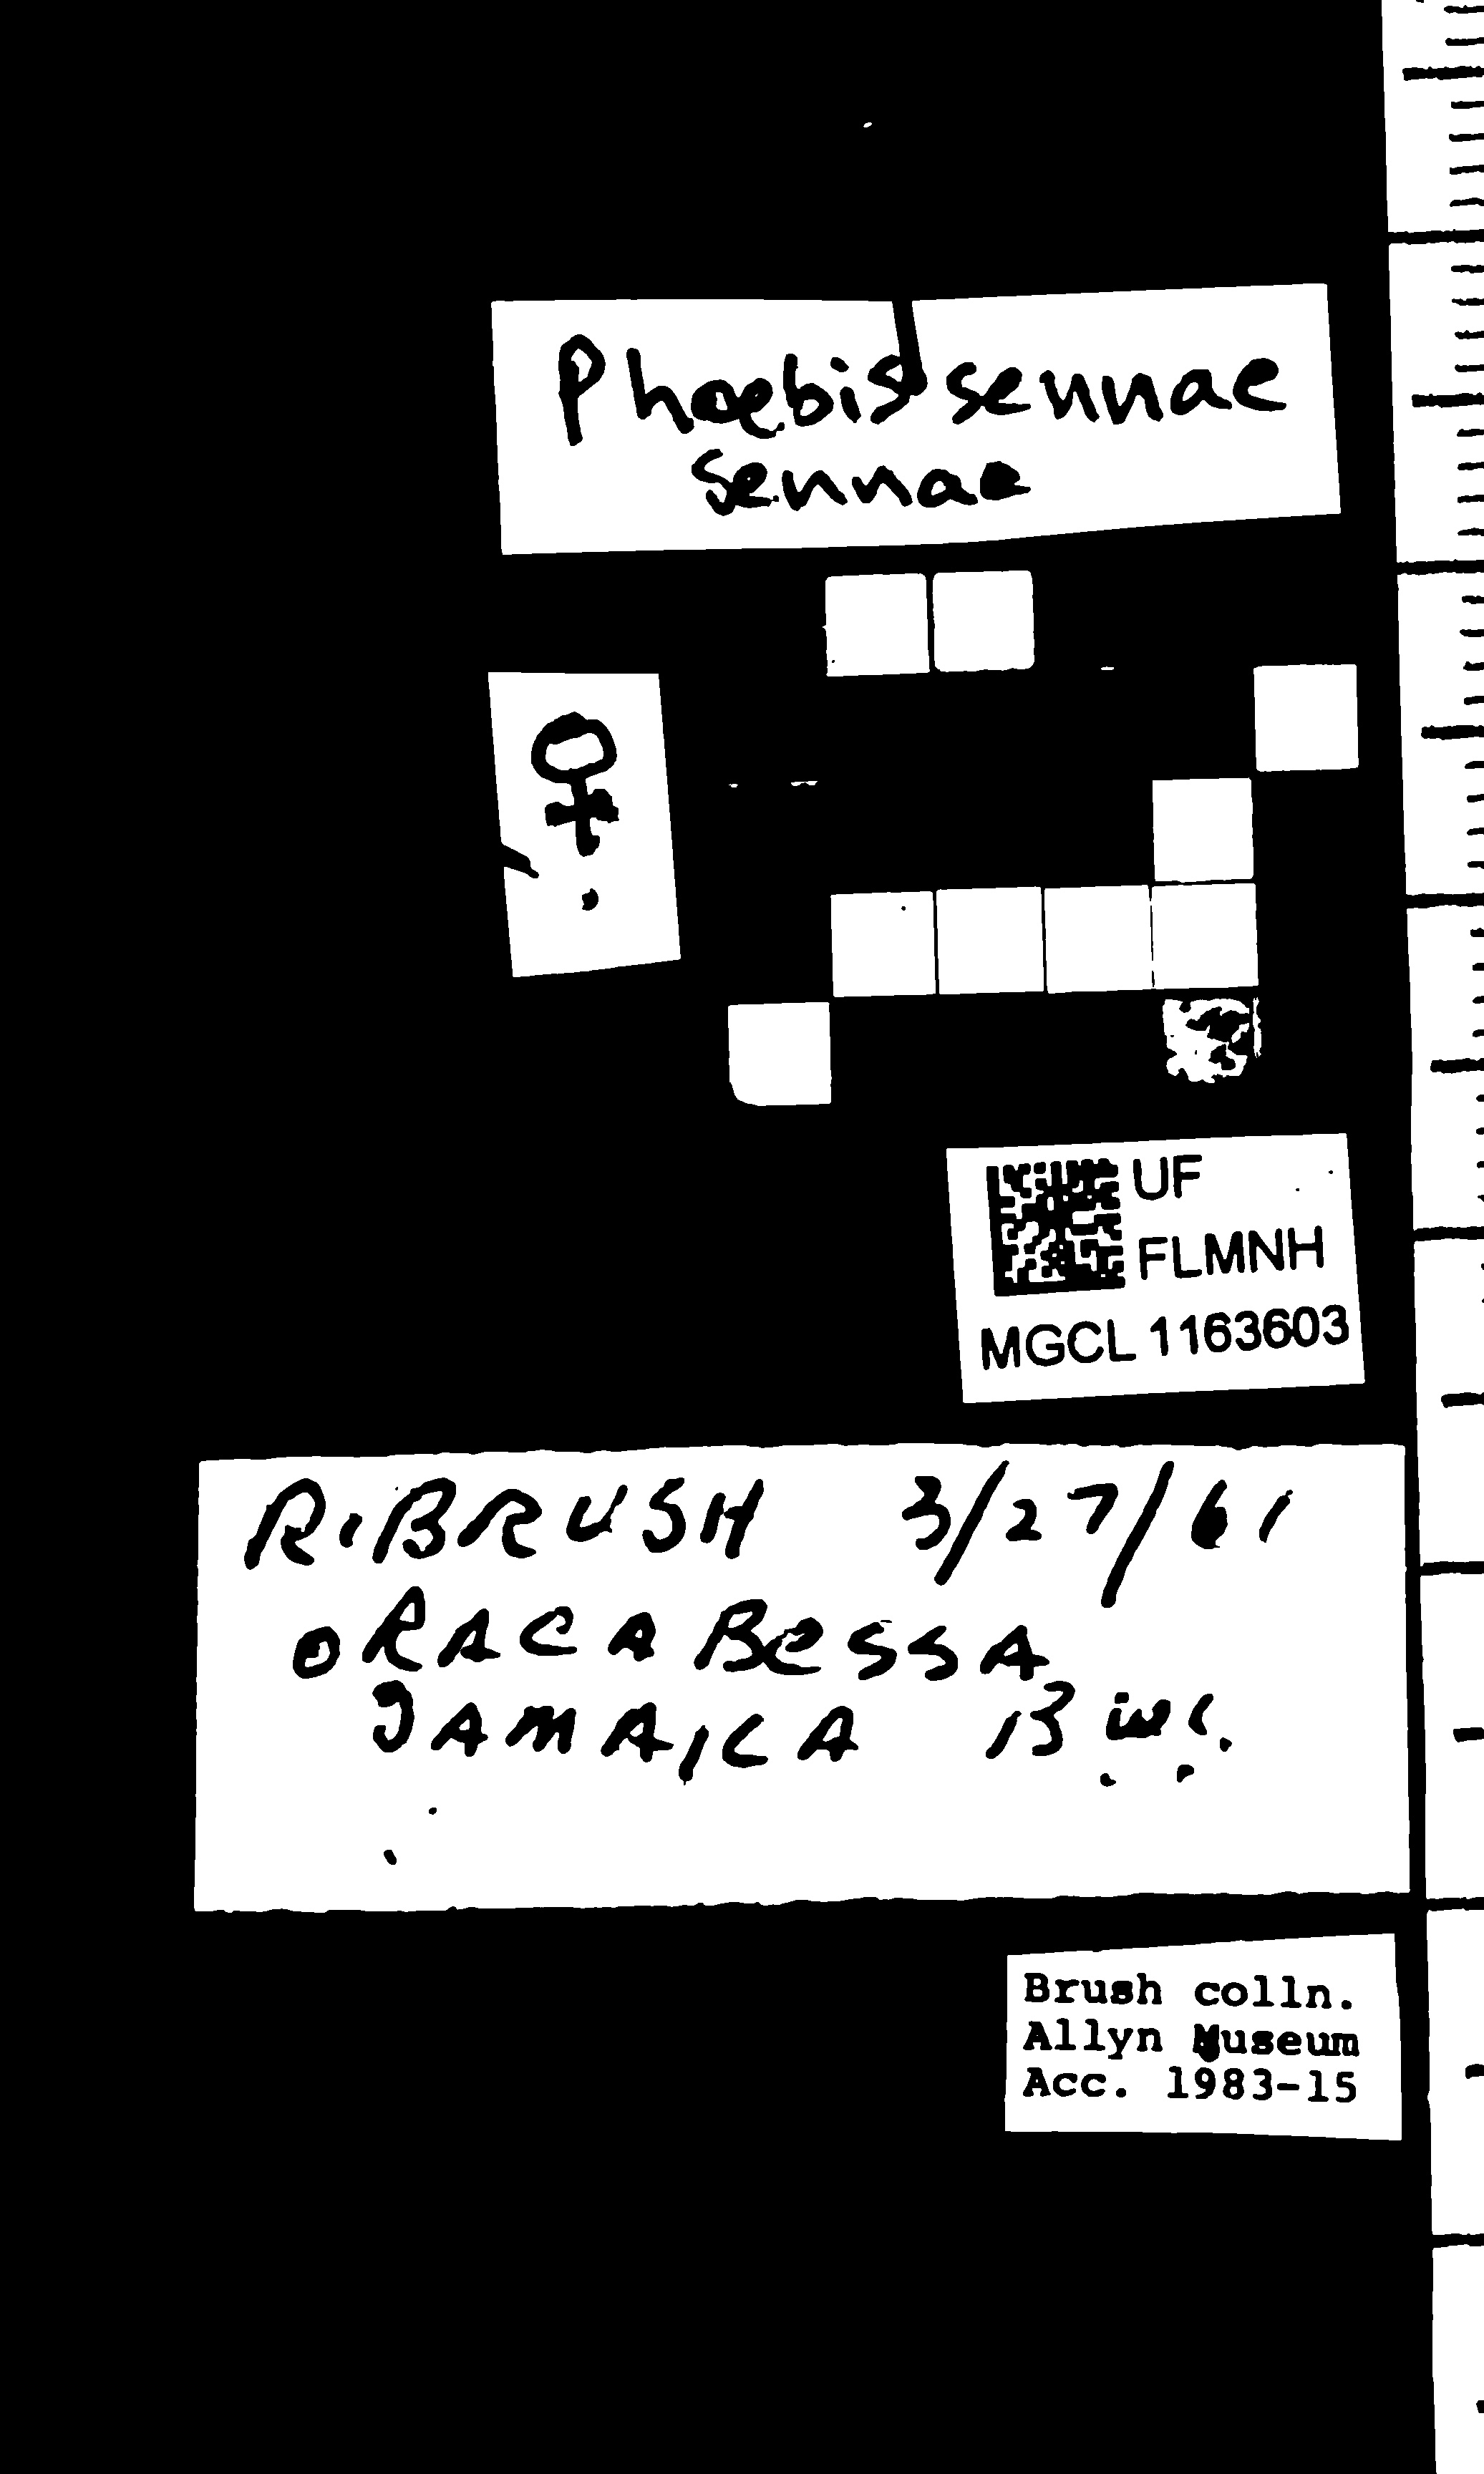 Phoebis sennae
sennae
♀
UF
FLMNH
MGCL 1163603
R. BRUSH 3/27/61
ORACABESSA
JAMAICA B
Brush colln.
Allyn Museum
Acc. 1983-15